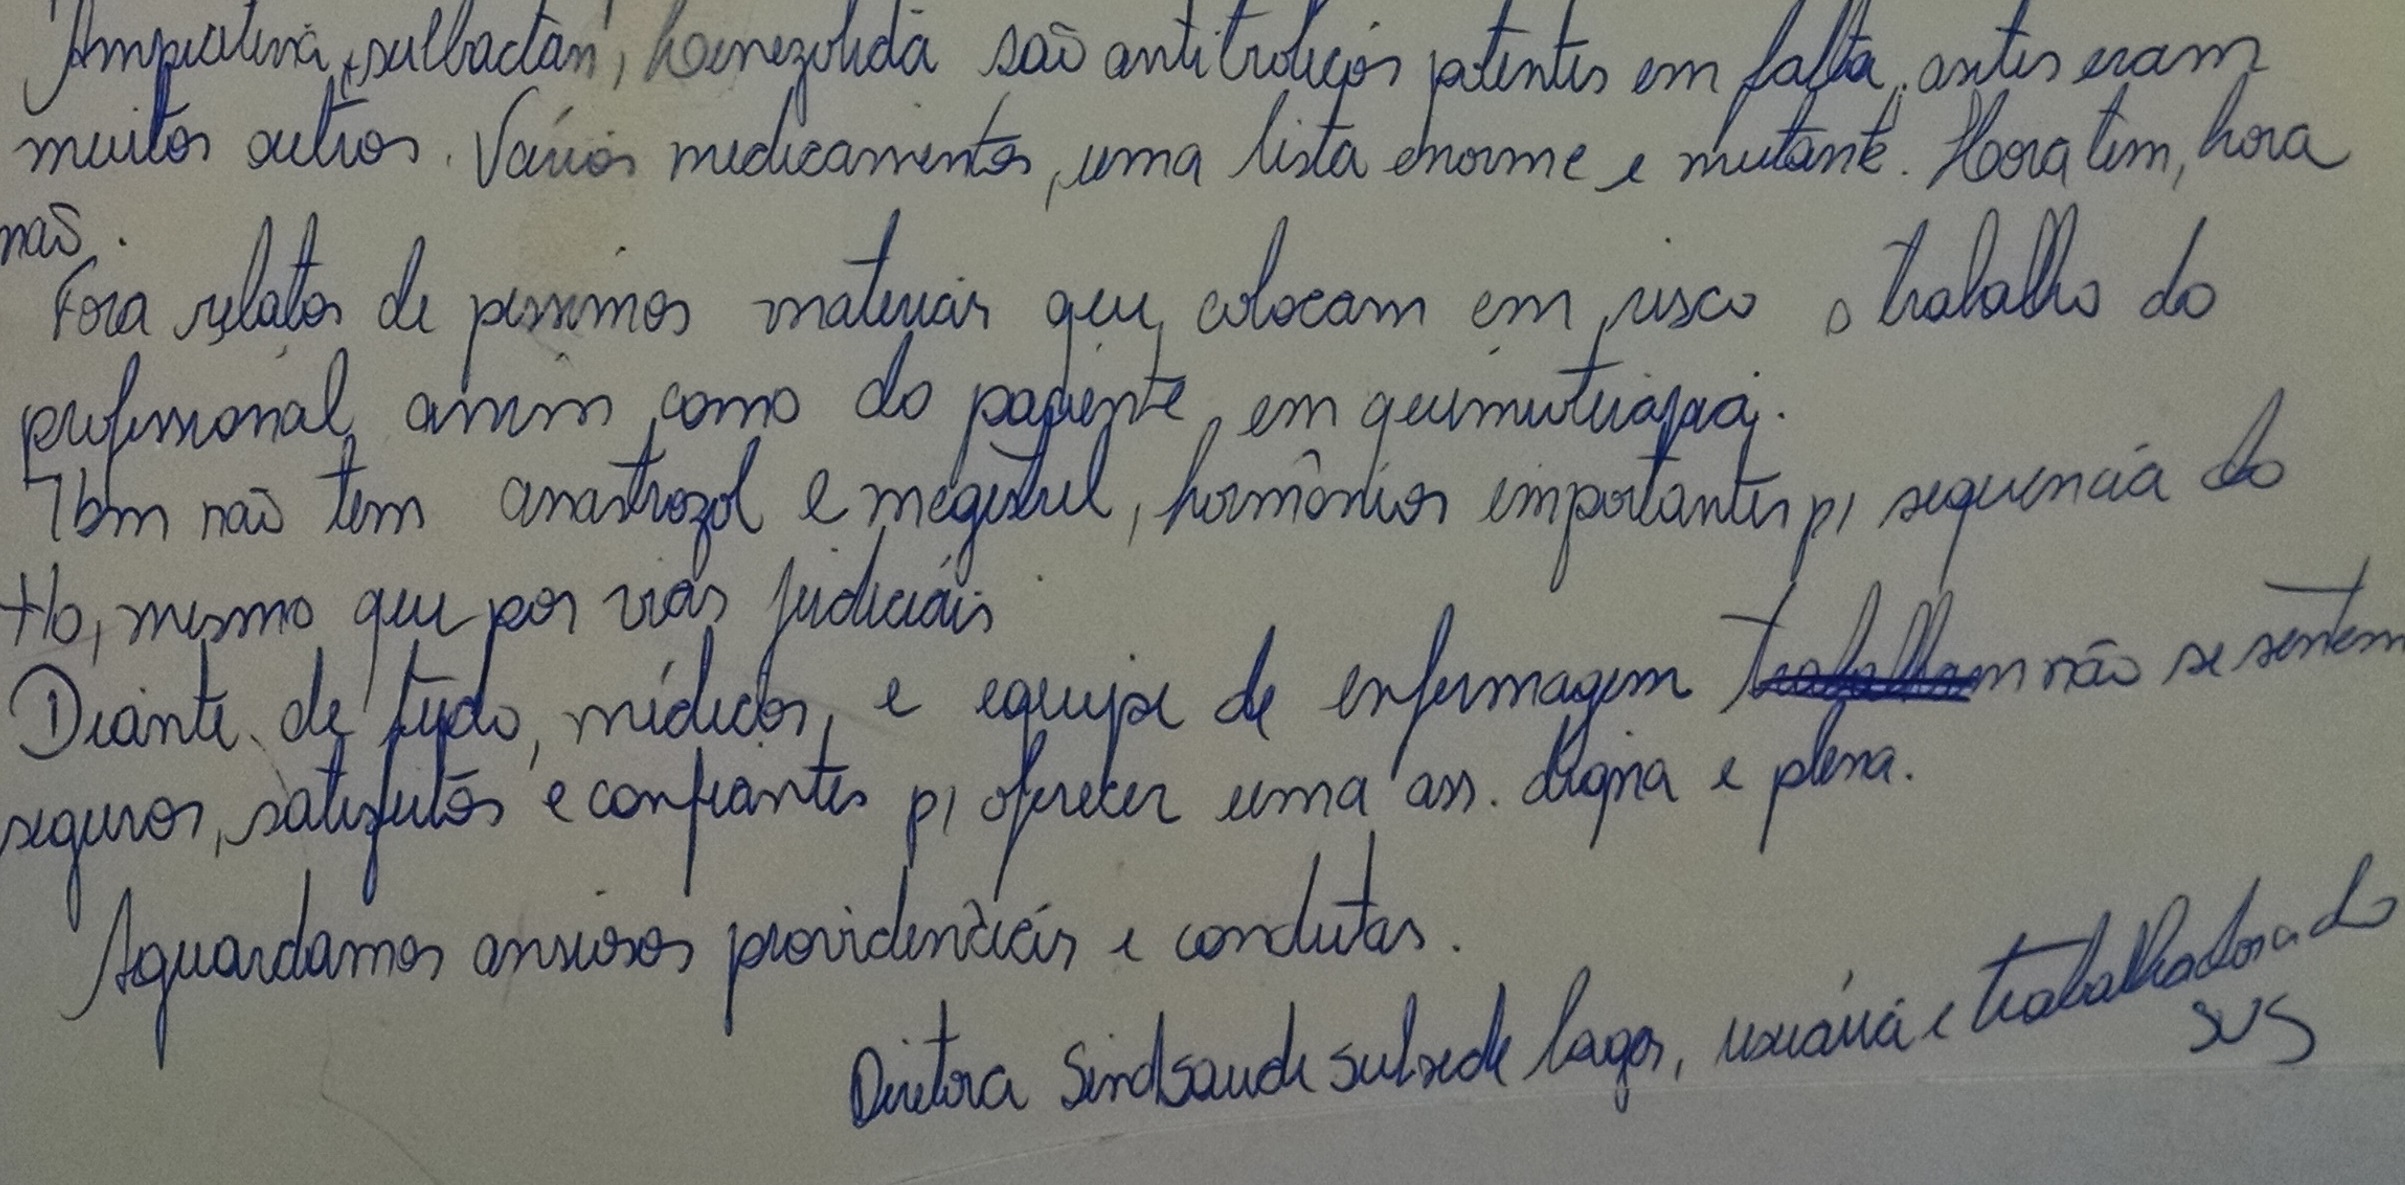 Ampicilina + sulbactan, Linezolida são antibióticos potentes em falta, antes eram
muitos outros. Vários medicamentos, uma lista enorme e mutante. Hora tem, hora
não.
Fora relatos de péssimos materiais que colocam em risco o trabalho do
profissional assim como do paciente em quimioterapia.
Tbm não tem anastrozol e megestrel, hormônios importantes p/ sequencia do
tto, mesmo que por vias judiciais
Diante de tudo, médicos, e equipe de enfermagem trabalham não se sentem
seguros, satisfeitos e confiantes p/ oferecer uma ass. digna e plena.
Aguardamos ansiosos providências e condutas.
Diretora Sindsaude subsede Lagos, usuária e trabalhadora do
SUS